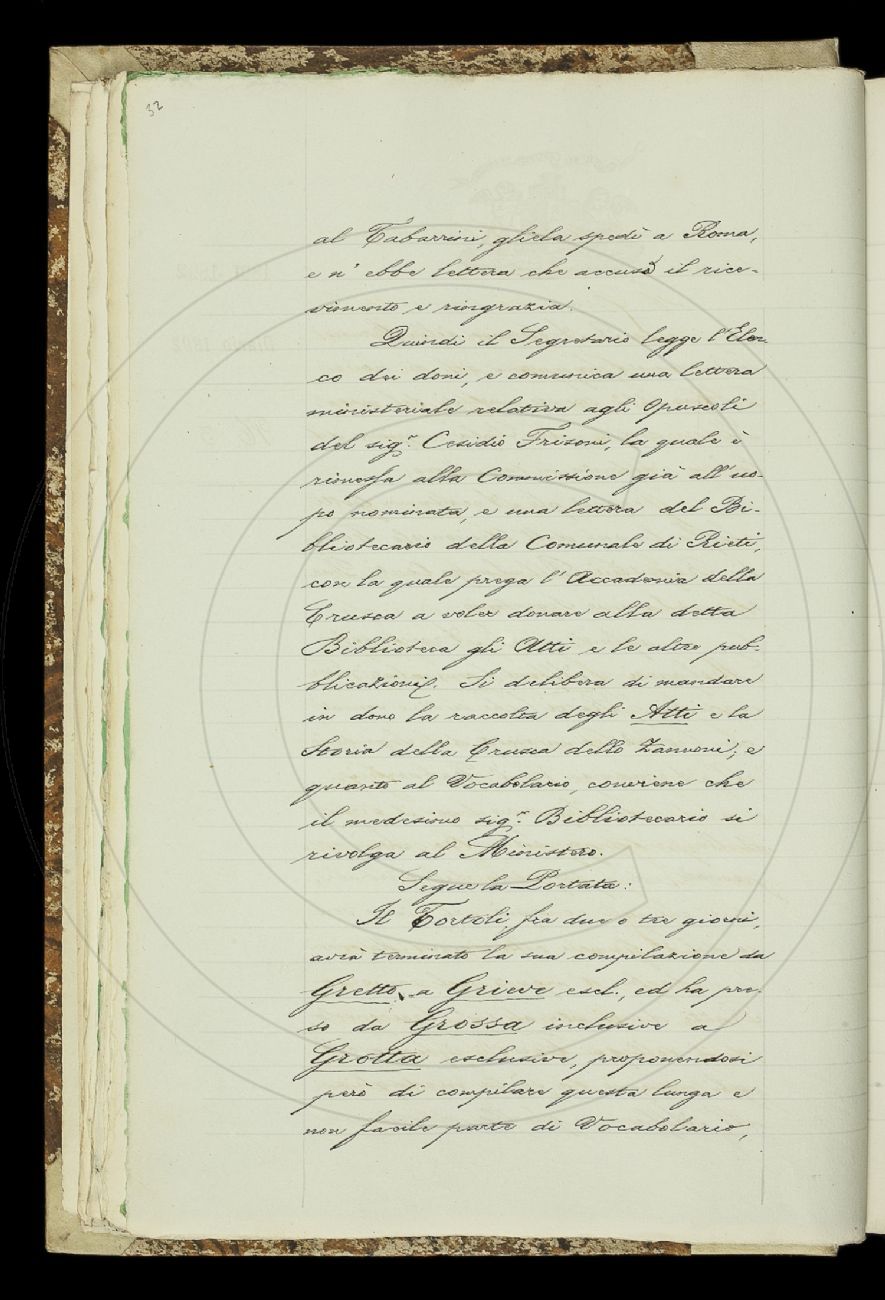 32
al Tabarrini, gliela spedì a Roma,
e n' ebbe lettera che accusò il rice-
vimento e ringrazia.
Quindi il Segretario legge l'Elen-
co dei doni, e comunica una lettera
ministeriale relativa agli Opuscoli
del sig.r Cesidio Frisoni, la quale è
rimessa alla Commissione già all'uo-
po nominata, e una lettera del Bi-
bliotecario della Comunale di Rieti,
con la quale prega l'Accademia della
Crusca a voler donare alla detta
Biblioteca gli Atti e le altre pub-
blicazioni. Si delibera di mandare
in dono la raccolta degli Atti e la
Storia della Crusca dello Zannoni; e
quanto al Vocabolario, conviene che
il medesimo sig.r Bibliotecario si
rivolga al Ministero.
Segue la Portata:
Il Tortoli, fra due o tre giorni,
avrà terminato la sua compilazione da
Gretto, a Grieve escl., ed ha pre-
so da Grossa inclusive a
Grotta esclusive, proponendosi
però di compilare questa lunga e
non facile parte di Vocabolario,